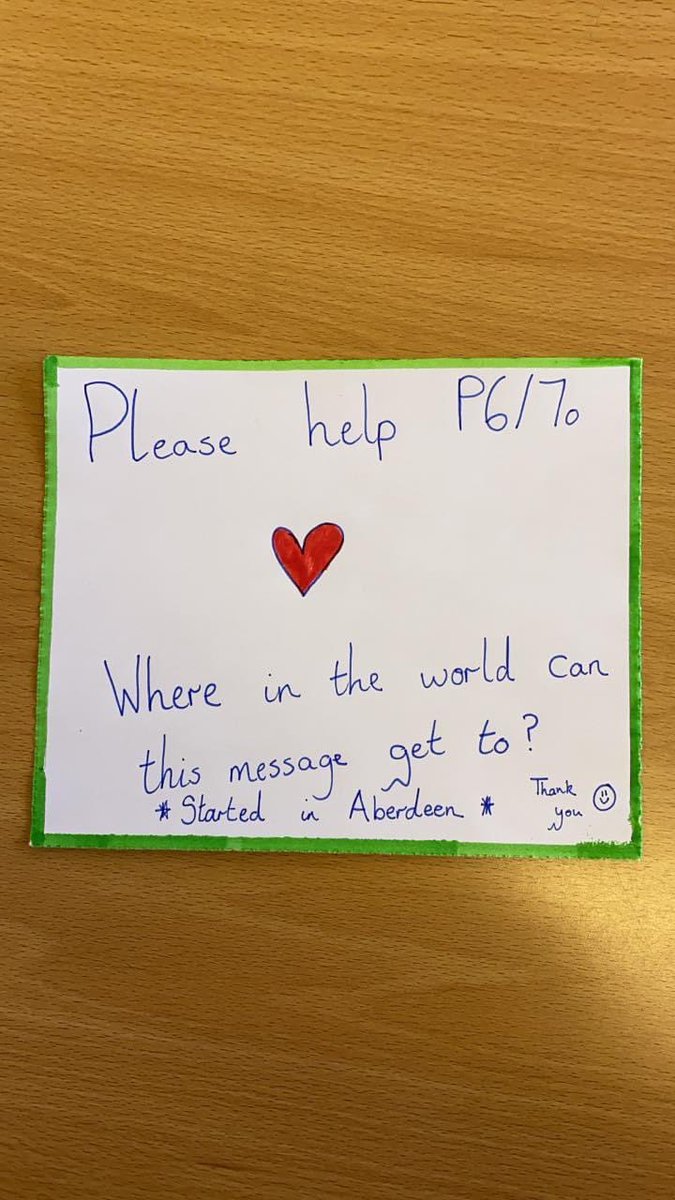 Please help P6/7.
Where in the world can
this message get to?
* Started in Aberdeen *
Thank
you